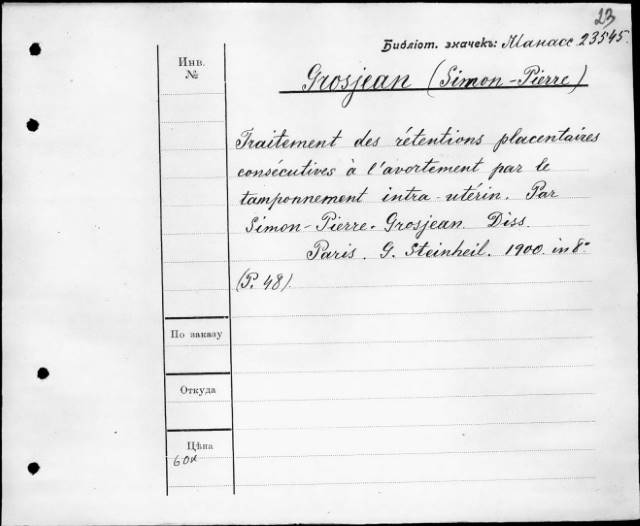 23
Библіот. значекъ: Манасс 23545.
Инв.
№
Grosjean (Simon-Pierre)
Traitement des rétentions placentaires
consécutives à l'avortement par le
tamponnement intra-utérin. Par
Simon-Pierre-Grosjean. Diss.
Paris. G. Steinheil. 1900. in 8º
(P. 48).
По заказу
Откуда
Цѣна
60к